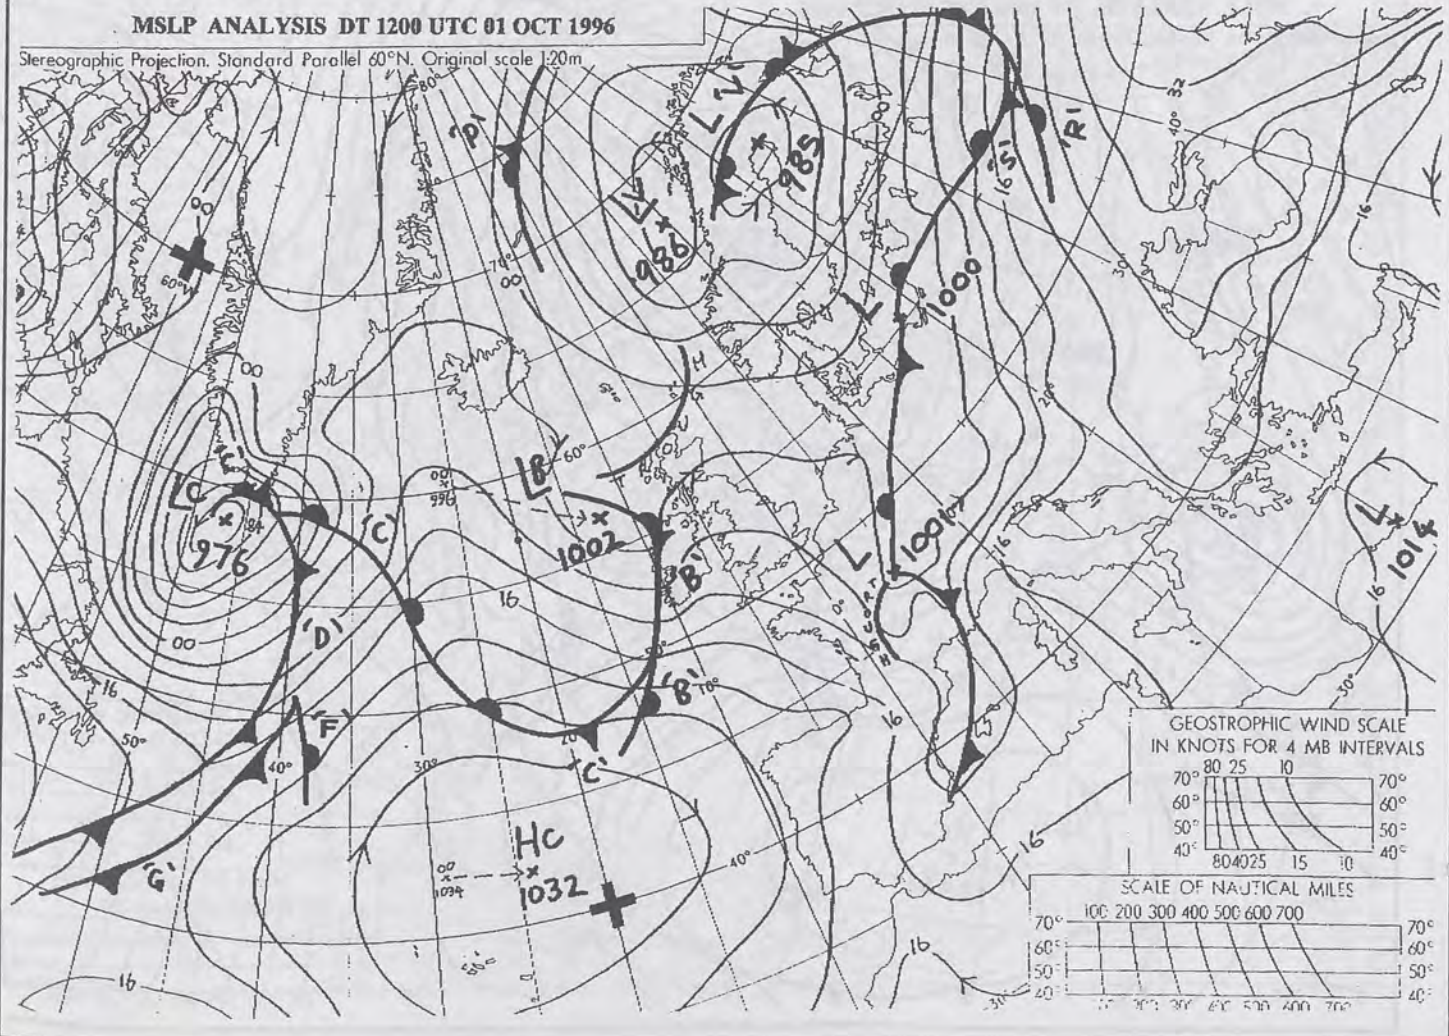 MSLP ANALYSIS DT 1200 UTC 01 OCT 1996
Stereographic Projection. Standard Parallel 60°N. Original scale 1:20m
80°
'P'
LV
986
LZ
985
00
'S'
16
'R'
32
40°
16
00
60°W
70°
00
L
1000
30°
20°
00
H
G
T
'E'
LC
84
976
'C'
00
996
LB
60°
1002
'B'
L
1001
TROUGH
0°
16
L
1014
16
16
'D'
00
16
50°
'F'
40°
30°
20°
'C'
50°
'B'
10°
16
30°
'G'
HC
00
1034
1032
40°
16
16
16
30°
GEOSTROPHIC WIND SCALE
IN KNOTS FOR 4 MB INTERVALS
80 25 10
70° 70°
60° 60°
50° 50°
40° 40°
80 40 25 15 10
SCALE OF NAUTICAL MILES
100 200 300 400 500 600 700
70° 70°
60° 60°
50° 50°
40° 40°
200 300 400 500 600 700